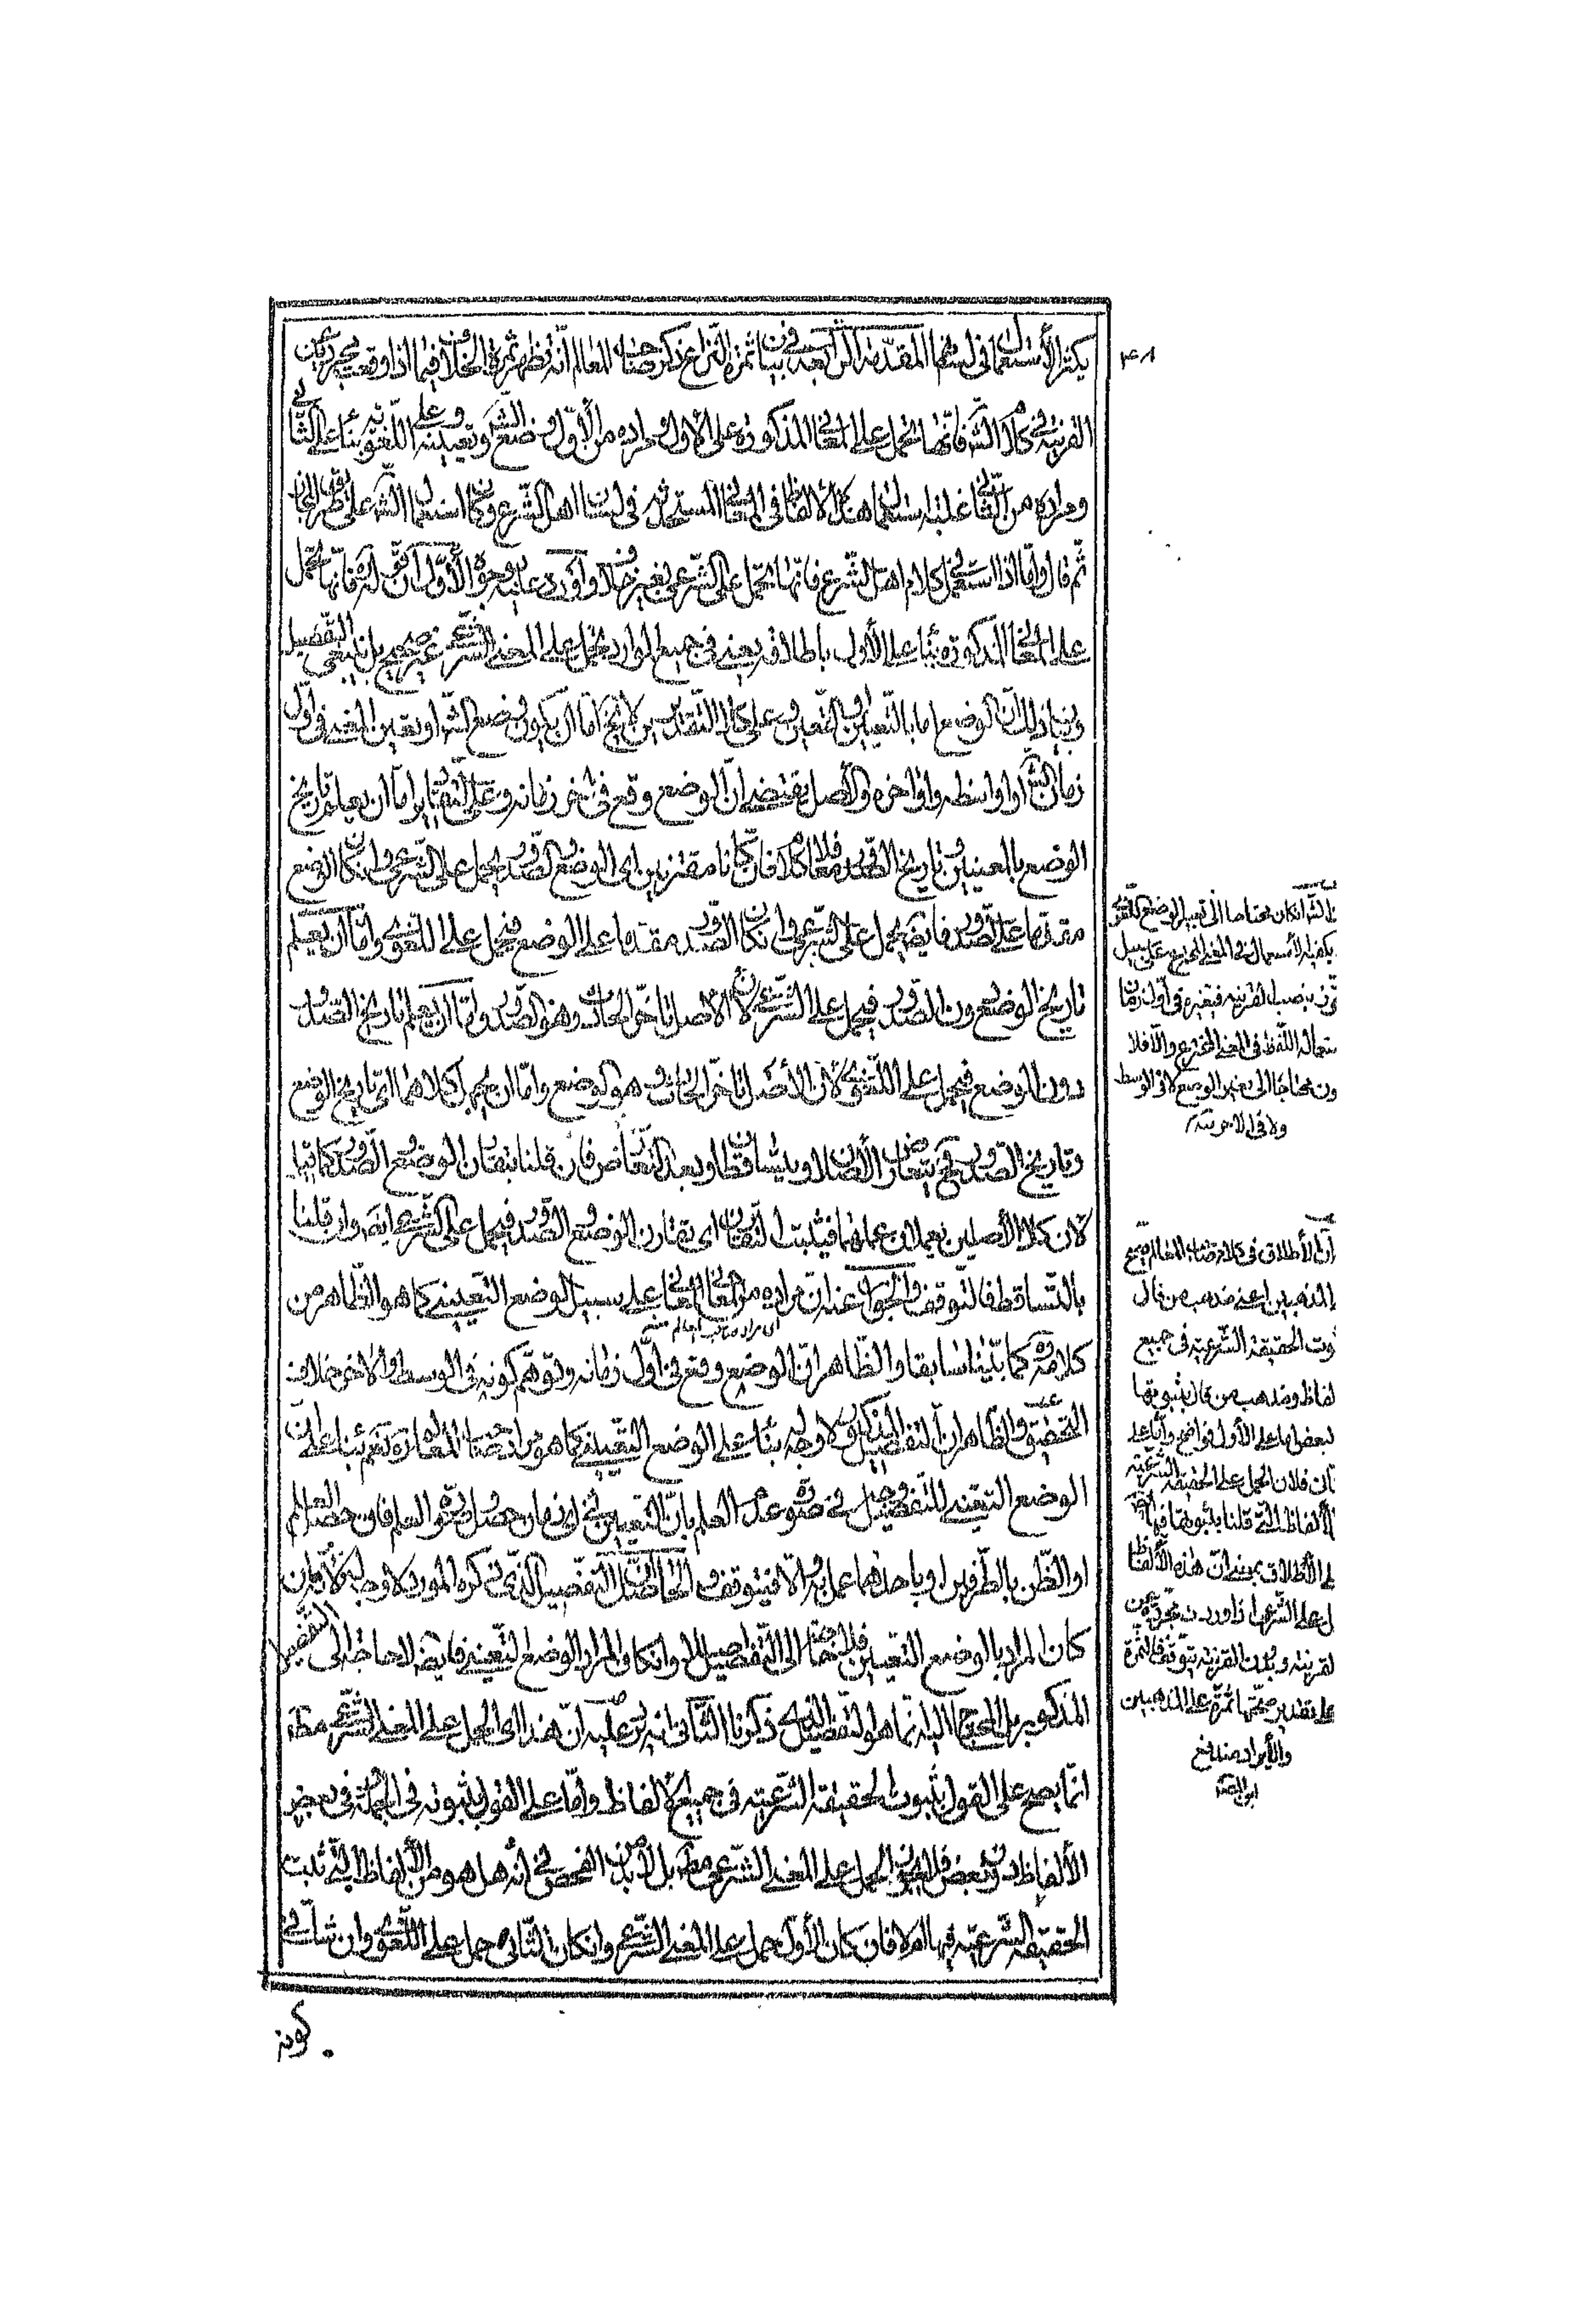 يكثر الأستعمال في لسانهما المقدّمة الرّابعة في بيان ثمرة النّزاع ذكر صاحب المعالم انّه تظهر ثمرة الخلاف فيما اذا وقعت مجرّدة عن
القرينة في كلام الشّ فانّها تحمل على المعاني المذكورة على الأول ومراده من الأوّل وضع الشّ وتعيينه وعلى اللغويّة بناء على الثّاني
ومراده من الثّاني غلبة استعمال هذه الألفاظ في المعاني المستحدثة في لسان اهل الشّرع وكان استعمال الشّ على طريق المجاز
ثم قال وامّا اذا استعملت في كلام اهل الشّرع فانّها تحمل على الشّرعي بغير خلاف واورد عليه وجوه الأوّل انّ قوله فانّها تحمل
على المعاني المذكورة بناء على الأول باطلاقه يعني في جميع الموارد تحمل على المعنى الشّرعي غير صحيح بل ينبغي التّفصيل
وبيان ذلك انّ الوضع اما بالتّعيين او التّعيّن وعلى كلا التّقديرين لا يخ امّا ان يكون وضع الشّ او تعيين المعنى في اوّل
زمان الشّ او اواسطه او اواخره والأصل يقتضي انّ الوضع وقع في اخر زمانه وعلى التّقادير امّا ان يعلم تاريخ
الوضع بالمعنيين وتاريخ الصّدور معا فلا كلام فان كانا مقترنين اي الوضع والصّدور يحمل على الشّرعي وان كان الوضع
مقدّما على الصّدور فايضا يحمل على الشّرعي وان كان الصّدور مقدما على الوضع فيحمل على اللّغوي وامّا ان يعلم
تاريخ الوضع دون الصّدور فيحمل على الشّرعي لانّ الأصل تاخّر الحادث وهو الصّدور وامّا ان يعلم تاريخ الصّدور
دون الوضع فيحمل على اللّغوي لانّ الأصل تاخّر الحادث وهو الوضع وامّا ان يجهل كلاهما اي تاريخ الوضع
وتاريخ الصّدور فح يتعارض الأصلان ويتساقطا وبعد التّعارض فان قلنا بتقارن الوضع والصّدور كما
لأن كلا الأصلين يعملان عملهما فيثبت التّقارن اي تقارن الوضع والصّدور فيحمل على الشّرعي ايضا وان قلنا
بالتّساقط فالتّوقف والجواب عنه انّ مراده من المعاني على سبيل الوضع التّعييني كما هو الظّاهر من
اي مراد صاحب المعالم منه
كلامه ره كما بيّنّا سابقا والظّاهر انّ الوضع وقع في اوّل زمانه وتوهّم كونه في الوسط او الاخر خلاف
التّحقيق والظّاهر انّ التّفصيل المذكور لا وجه له بناء على الوضع التّعييني كما هو مراد صاحب المعالم ره نعم بناء على انّ
الوضع التّعيّني للتّفصيل وجه في صورة عدم العلم بانّ التّعيين في اي زمان حصل العلم فان حصل العلم
او الظّن بالطّرفين او باحدهما عمل به والا فيتوقف والحاصل انّ التّفصيل الّذي ذكره المورد لا وجه له لأنّه ان
كان المراد بالوضع التّعيين فلا يحتاج الى التّفاصيل وان كان المراد الوضع التّعيّني فايضا لا حاجة الى التّفصيل
المذكور بل المحتاج اليه انّما هو التّفصيل الّذي ذكرنا الثّاني انّه يرد عليه انّ هذا اي الحمل على المعنى الشّرعي مط
انّما يصح على القول بثبوت الحقيقة الشّرعيّة في جميع الألفاظ وامّا على القول بثبوته في الجملة في بعض
الألفاظ دون بعض فلا يجوز الحمل على المعنى الشّرعي مط بل لا بدّ من الفحص في انّه هل هو من الألفاظ الّتي ثبت
الحقيقة الشّرعيّة فيها ام لا فان كان الأوّل حمل على المعنى الشّرعي وان كان الثّاني حمل على اللّغوي وان شك في
كونه
٤٨
الشّ ان كان محتاجا الى تعيين الوضع
يكفيه الأستعمال في المعنى المخترع على سبيل
بنصب القرينة فيتعيّن في اوّل زمان
استعمال اللّفظ في المعنى المخترع والّا فلا
يكون محتاجا الى تعيين الوضع لا في الوسط
ولا في الاخر منه
انّ الأطلاق في كلام صاحب المعالم صحيح
المذهبين اعني مذهب من قال
بثبوت الحقيقة الشّرعيّة في جميع
الألفاظ ومذهب من قال بثبوتها
لبعضها امّا على الأول فواضح وامّا على
الثّاني فلان الحمل على الحقيقة الشّرعيّة
الألفاظ الّتي قلنا بثبوتها فيها
على الأطلاق بمعنى انّ هذه الألفاظ
تحمل على الشّرعي اذا وردت مجرّدة عن
القرينة وبدون القرينة يتوقّف فالثّمرة
على تقدير صحّتها ثمرة على المذهبين
والأيراد مندفع